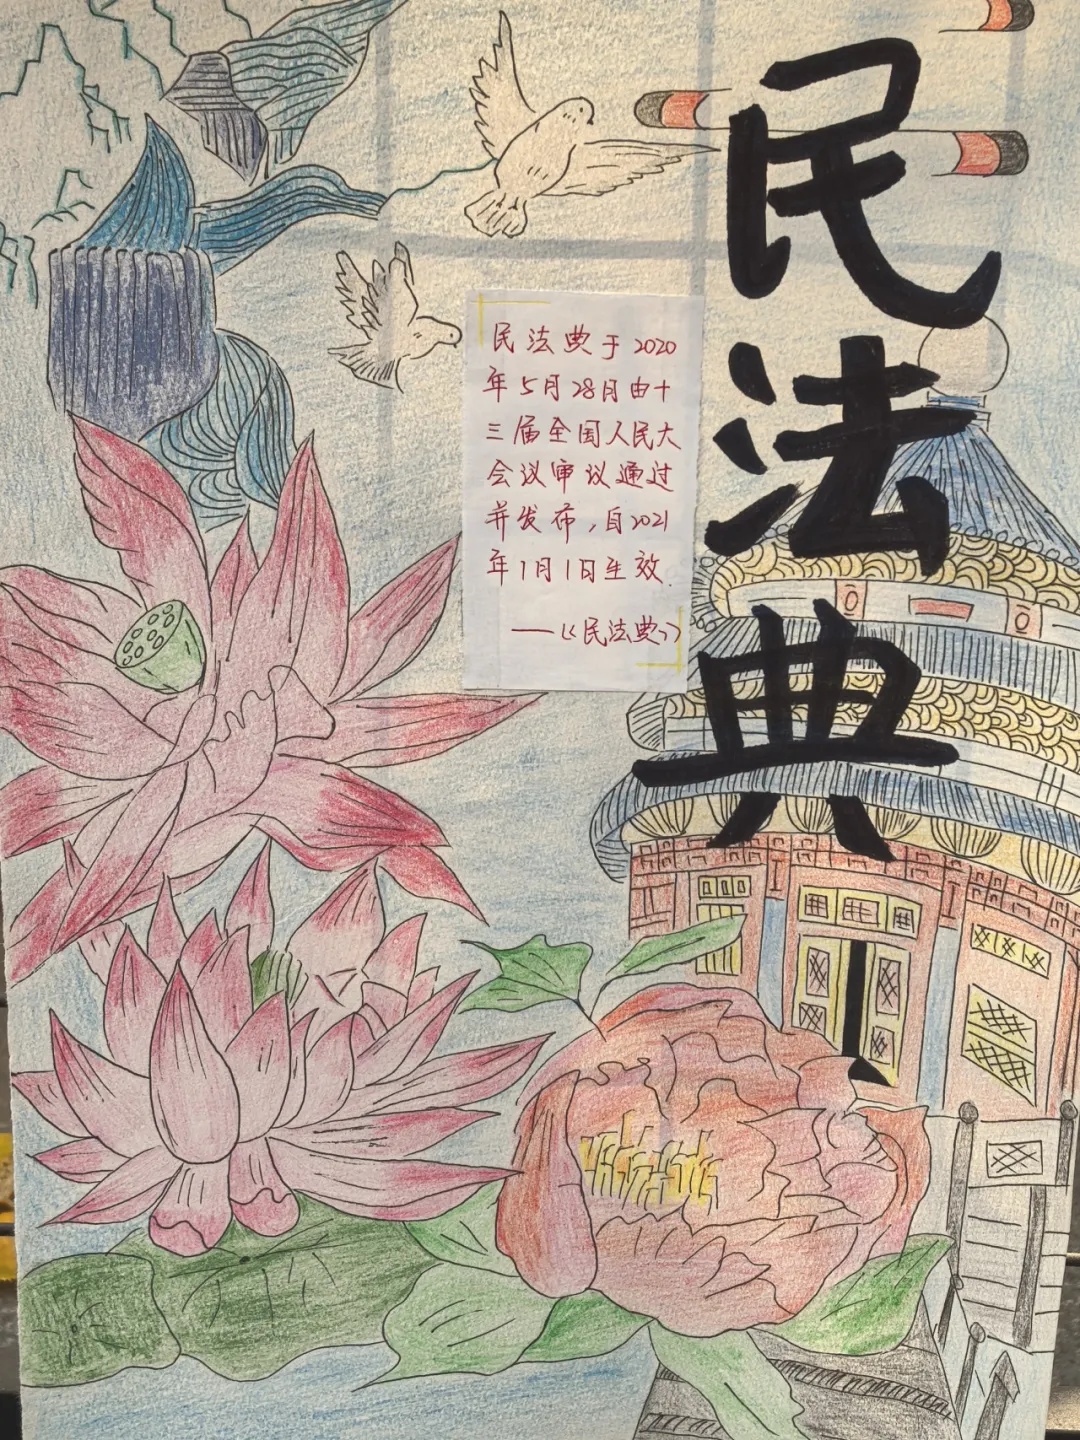 民法典
民法典于2020
年5月28日由十
三届全国人民大
会议审议通过
并发布,自2021
年1月1日生效.
—《民法典》